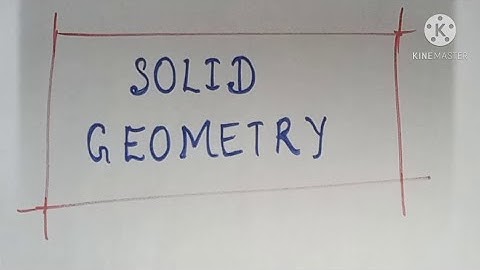 K
KINEMASTER
SOLID
GEOMETRY